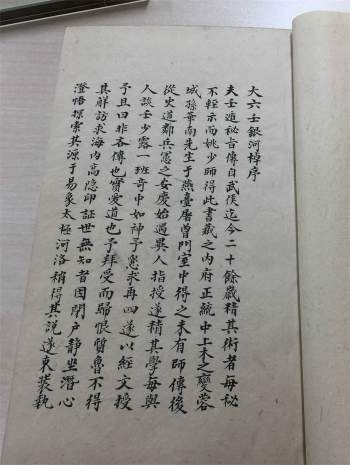 大六壬銀河棹序
夫壬遁秘吉傳自武侯迄今二十餘歲精其術者每秘
不輕示而姚少師得此書藏之內府正統中上木之變蓉
城孫華南先生于燕臺屠曾門室中得之未有師傳後
從史道鄰兵憲之安慶始遇異人指授遂精其學每與
人談壬少露一班奇中如神予懇求再四遂以經文授
予且曰非吝傳也實愛道也予拜受而歸恨質魯不得
其解訪求海内高隐印証世無知者因閉户靜坐潛心
澄悟探索其源于易象太極河洛稍得其說遂束裝執